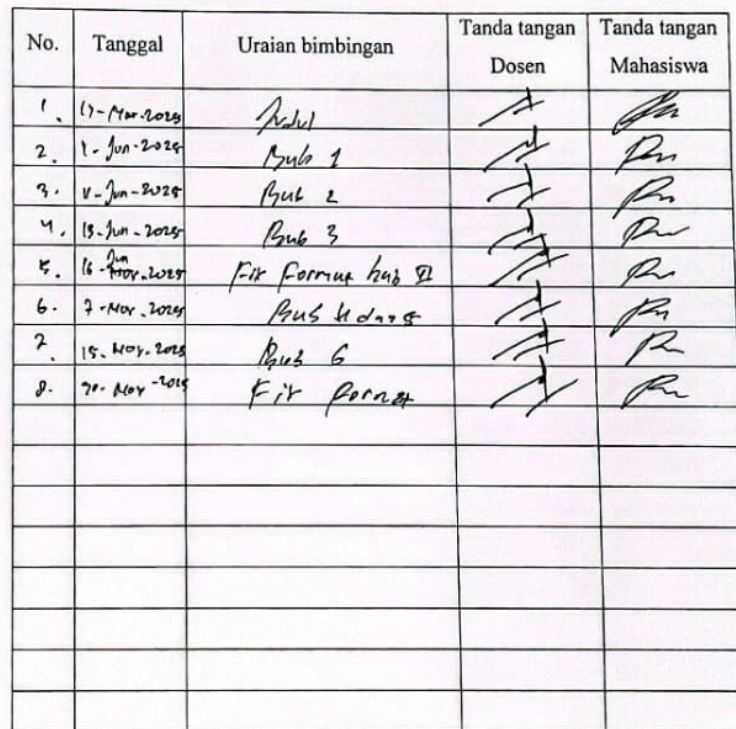 No. Tanggal Uraian bimbingan Tanda tangan Dosen Tanda tangan Mahasiswa
1. 17-Mar-2025 Judul
2. 1-Jun-2025 Bab 1
3. Jun-2025 Bab 2
4. 13-Jun-2025 Bab 3
5. 16-Jun 2025 Fix Format bab
6. 7-Nov-2025 Bab 4 dan 5
7. 15-Nov-2025 Bab 6
8. Nov-2025 Fix Format